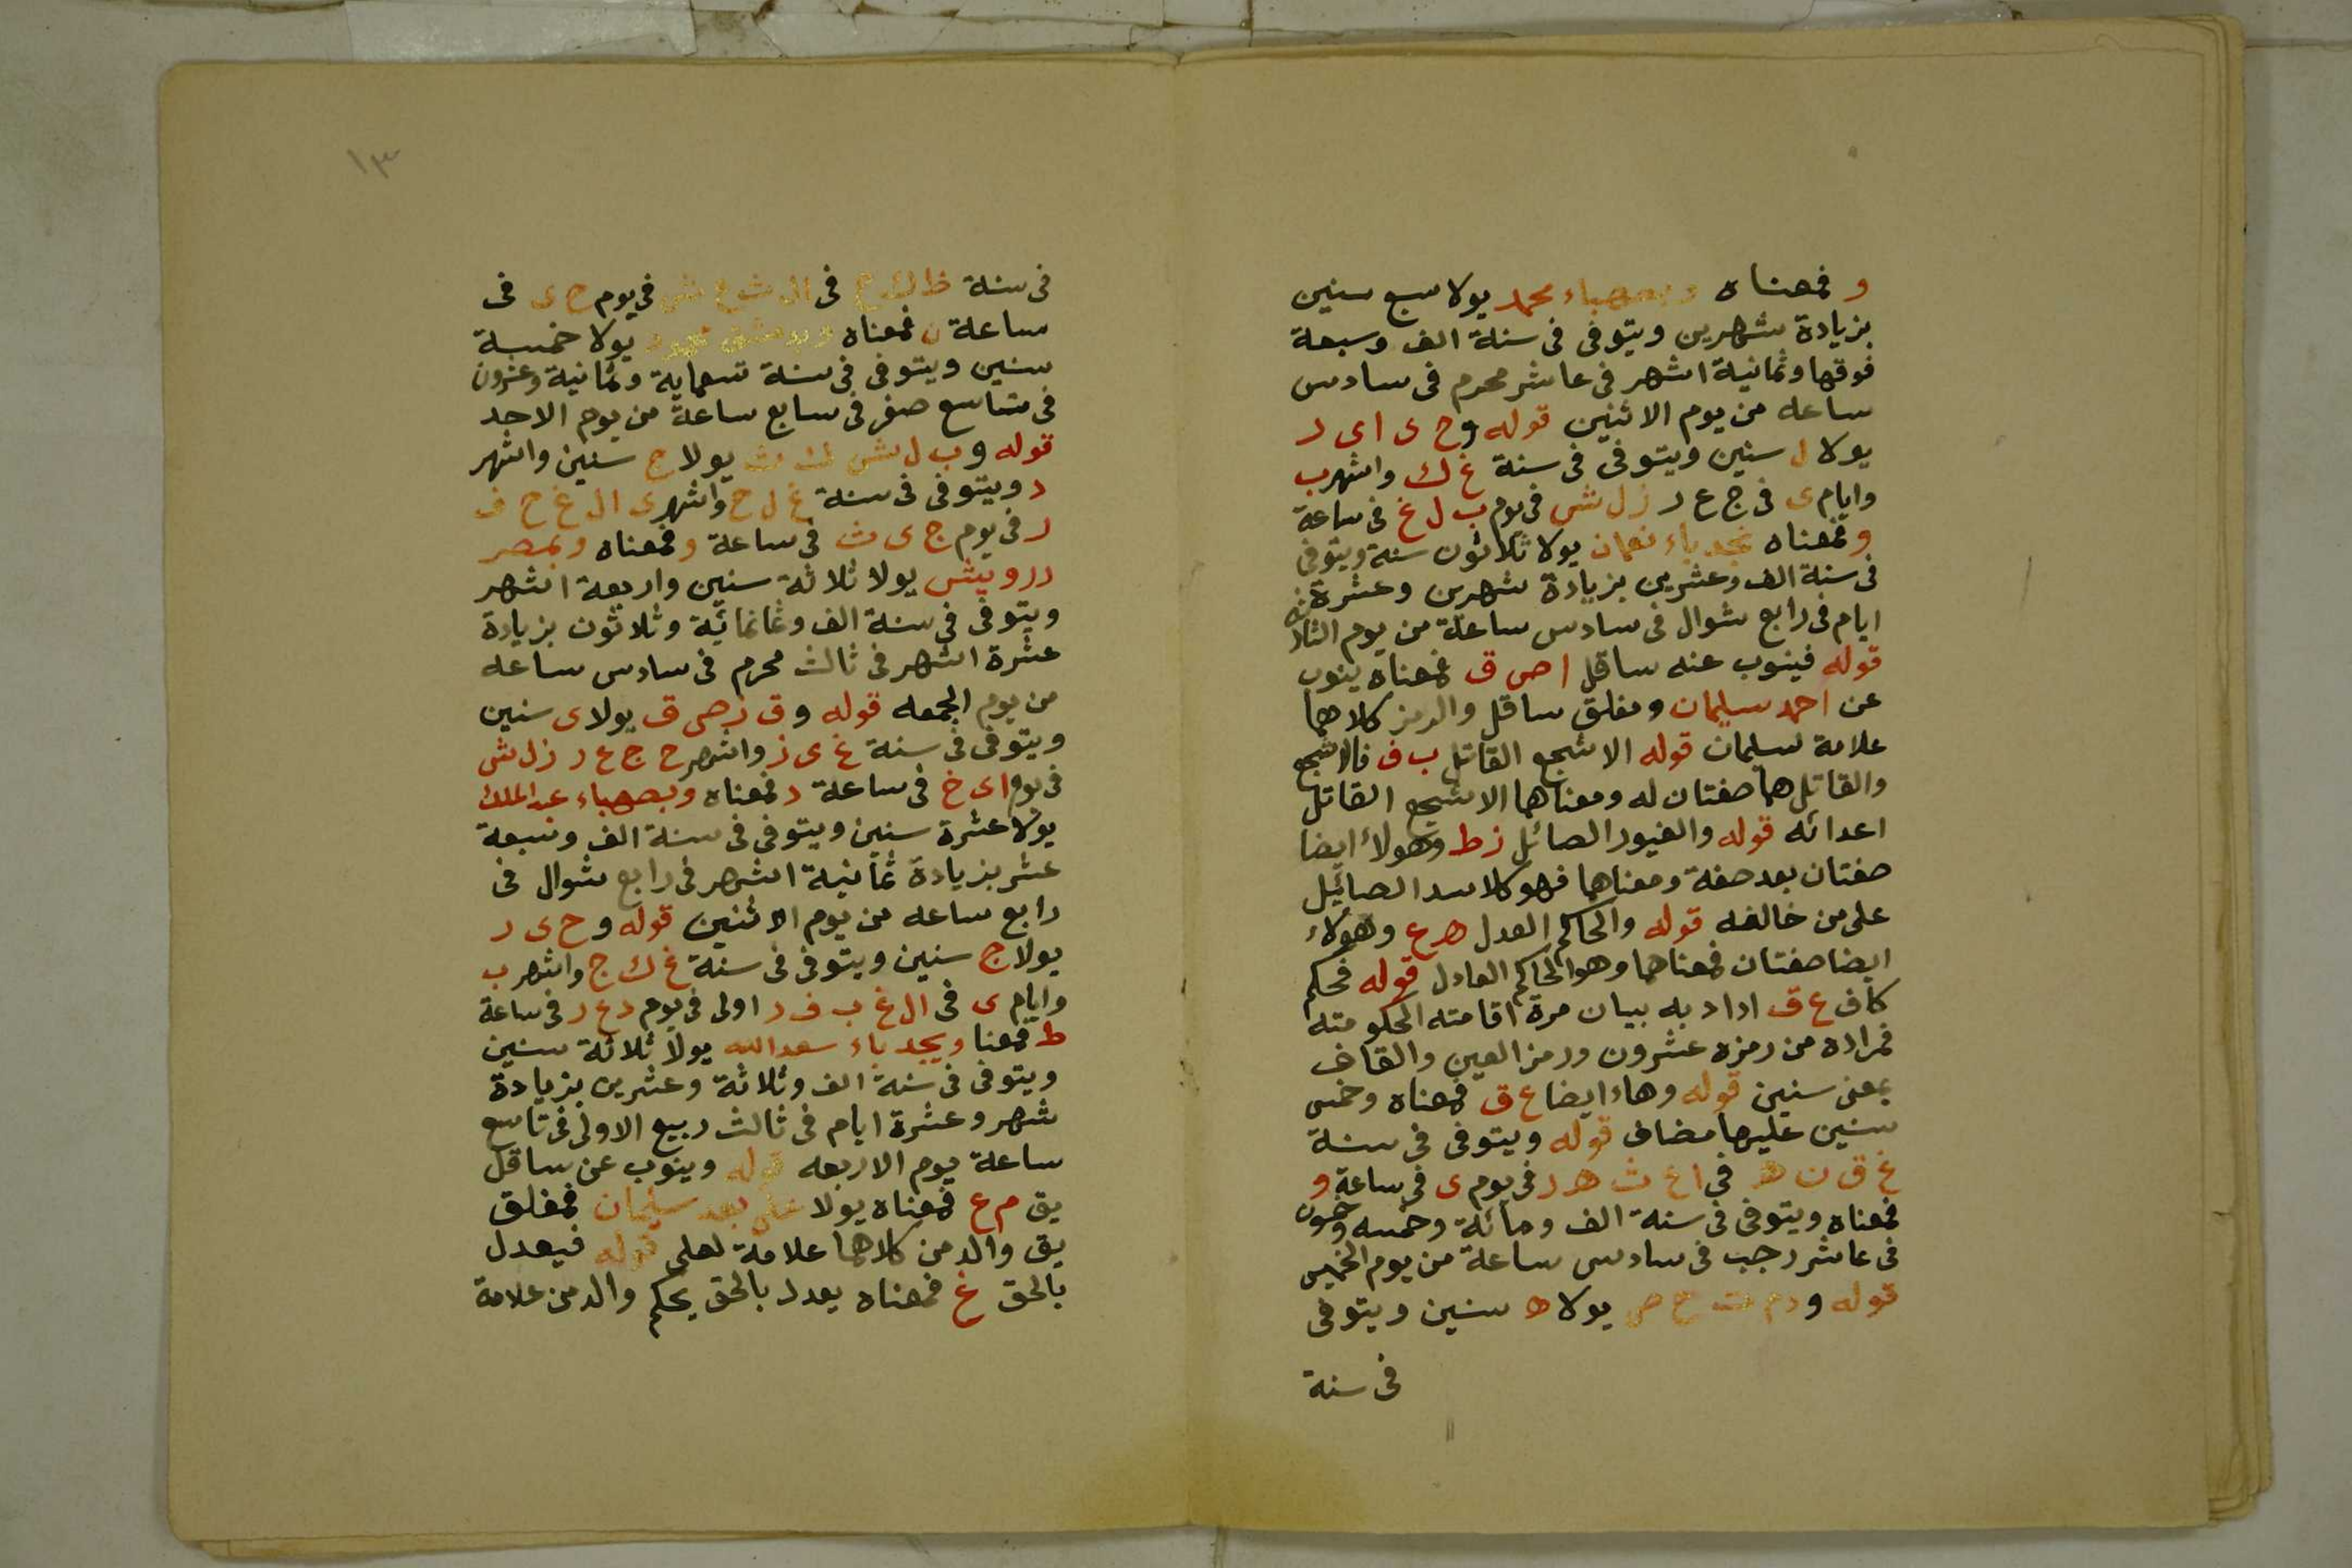 و فمعناه وبصهباء محمد يولا سبع سنين
بزيادة شهرين ويتوفى فى سنة الف وسبعة
فوقها وثمانية اشهر فى عاشر محرم فى سادس
ساعه من يوم الاثنين قوله وح ى اى د
يولا ل سنين ويتوفى فى سنة غ ك واشهر ب
وايام ى فى ج ع ر ز ل ش فى يوم ب ل غ فى ساعة
و فمعناه نعمان يولا ثلاثون سنة ويتوفى
فى سنة الف وعشرين بزيادة شهرين وعشرة
ايام فى رابع شوال فى سادس ساعة من يوم
قوله فينوب عنه ساقل ا ص ق فمعناه ينوب
عن احمد سليمان ومغلق ساقل والرمز كلاهما
علامة لسليمان قوله الاشجع القاتل ب ف فالاشجع
والقاتل هما صفتان له ومعناهما الاشجع القاتل
اعدائه قوله والغيور الصائل ز ط وهولاء ايضا
صفتان بعد صفة ومعناهما فهو كالاسد الصائيل
على من خالفه قوله والحاكم العدل ه ع وهولاء
ايضا صفتان فمعناهما وهو الحاكم العادل قوله فحكم
كاف ع ق اداد به بيان مرة اقامته الحكومته
فمراده من رمزه عشرون ورمز العين والقاف
بمعنى سنين قوله وهاء ايضا ع ق فمعناه وخمس
سنين عليها مضاف قوله ويتوفى فى سنة
غ ق ن ه فى ا ع ث ه ر فى يوم ى فى ساعة و
فمعناه ويتوفى فى سنة الف ومائة وخمسه وخمسون
فى عاشر رجب فى سادس ساعة من يوم الخميس
قوله و يولا ه سنين ويتوفى
فى سنة
١٣
فى سنة ظ ك ح فى فى يوم ح ى فى
ساعة ن فمعناه وبدمشق محمود يولا خمسة
سنين ويتوفى فى سنة تسعماية وثمانية وعشرون
فى تاسع صفر فى سابع ساعة من يوم الاحد
قوله وب ل ش ك ث يولا ج سنين واشهر
د ويتوفى فى سنة غ ل ح واشهر ى ال غ ح ف
ر فى يوم ج ى ث فى ساعة و فمعناه وبمصر
درويش يولا ثلاثة سنين واربعة اشهر
ويتوفى فى سنة الف وثمانمائة وثلاثون بزيادة
عشرة اشهر فى ثالث محرم فى سادس ساعه
من يوم الجمعه قوله وق ز ص ق يولا ى سنين
ويتوفى فى سنة غ ى ز واشهر ح ج ع ر ز ل ش
فى يوم اى خ فى ساعة د فمعناه وبصهباء عبدالملك
يولا عشرة سنين ويتوفى فى سنة الف وسبعة
عشر بزيادة ثمانية اشهر فى رابع شوال فى
رابع ساعه من يوم الاثنين قوله وح ى د
يولا ج سنين ويتوفى فى سنة غ ك ج واشهر ب
وايام ى فى ال غ ب ف ر اولى فى يوم د ع ر فى ساعة
ط فمعنا سعدالله يولا ثلاثة سنين
ويتوفى فى سنة الف وثلاثة وعشرين بزيادة
شهر وعشرة ايام فى ثالث ربيع الاولى فى تاسع
ساعة يوم الاربعه قوله وينوب عن ساقل
يق م ع فمعناه يولا على بعد سليمان فمغلق
يق والرمز كلاهما علامة لعلى قوله فيعدل
بالحق غ فمعناه يعدل بالحق يحكم والرمز علامة